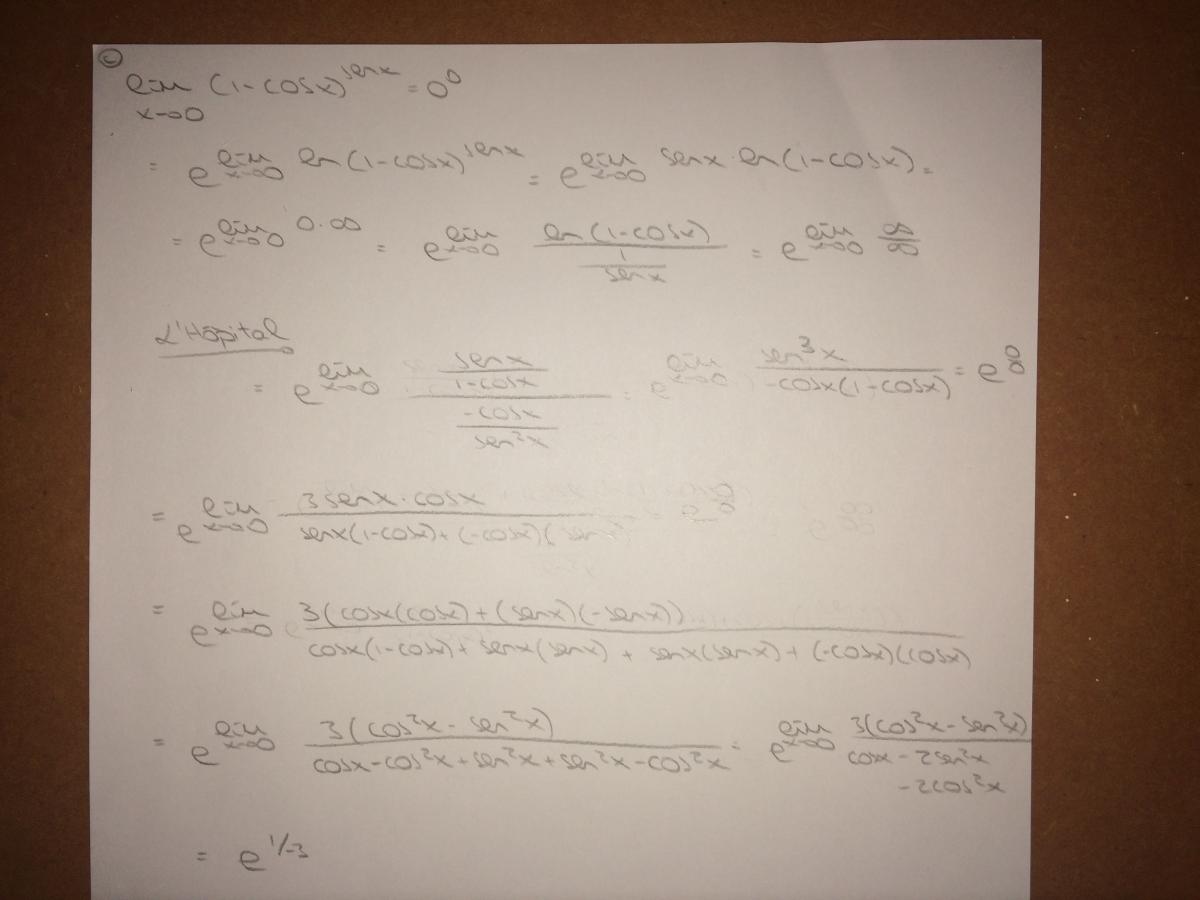 c
lim x→0 (1-cosx)^senx = 0^0
= e^lim x→0 ln(1-cosx)^senx = e^lim x→0 senx·ln(1-cosx) =
= e^lim x→0 0·∞ = e^lim x→0 ln(1-cosx)/(1/senx) = e^lim x→0 ∞/∞
L'Hôpital
= e^lim x→0 (senx/(1-cosx))/(-cosx/sen²x) = e^lim x→0 sen³x/(-cosx(1-cosx)) = e^0/0
= e^lim x→0 3senx·cosx/(senx(1-cosx)+(-cosx)(senx
= e^lim x→0 3(cosx(cosx)+(senx)(-senx))/(cosx(1-cosx)+senx(senx)+senx(senx)+(-cosx)(cosx))
= e^lim x→0 3(cos²x-sen²x)/(cosx-cos²x+sen²x+sen²x-cos²x) = e^lim x→0 3(cos²x-sen²x)/(cosx-2sen²x-2cos²x)
= e^1/-3